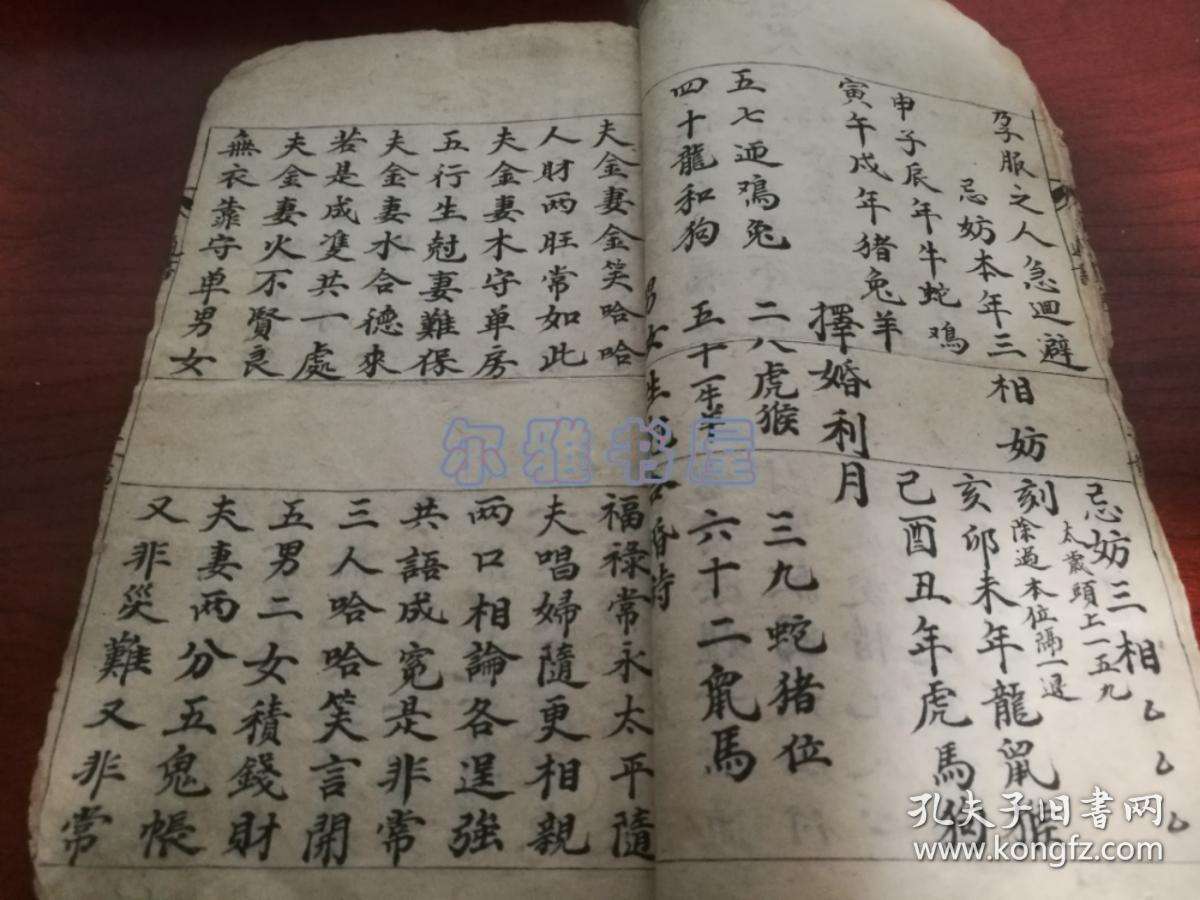 孕服之人急迴避
忌妨本年三
相妨
申子辰年牛蛇鳮
寅午戌年猪兔羊
忌妨三相
太歲頭上一五九
刻除過本位隔一退
亥卯未年龍鼠猴
己酉丑年虎馬狗
擇婚利月
五七迎鳮兔
二八虎猴
三九蛇猪位
四十龍和狗
五十一牛羊
六十二鼠馬
男女生
婚詩
夫金妻金笑哈哈
人財两旺常如此
夫金妻木守单房
五行生尅妻難保
夫金妻水合德來
若是成隻共一處
夫金妻火不賢良
無衣靠守单男女
福禄常永太平隨
夫唱婦隨更相親
两口相論各逞強
共語成冤是非常
三人哈哈笑言開
五男二女積錢財
夫妻两分五鬼帳
又非災難又非常
尔雅书屋
孔夫子旧书网
www.kongfz.com